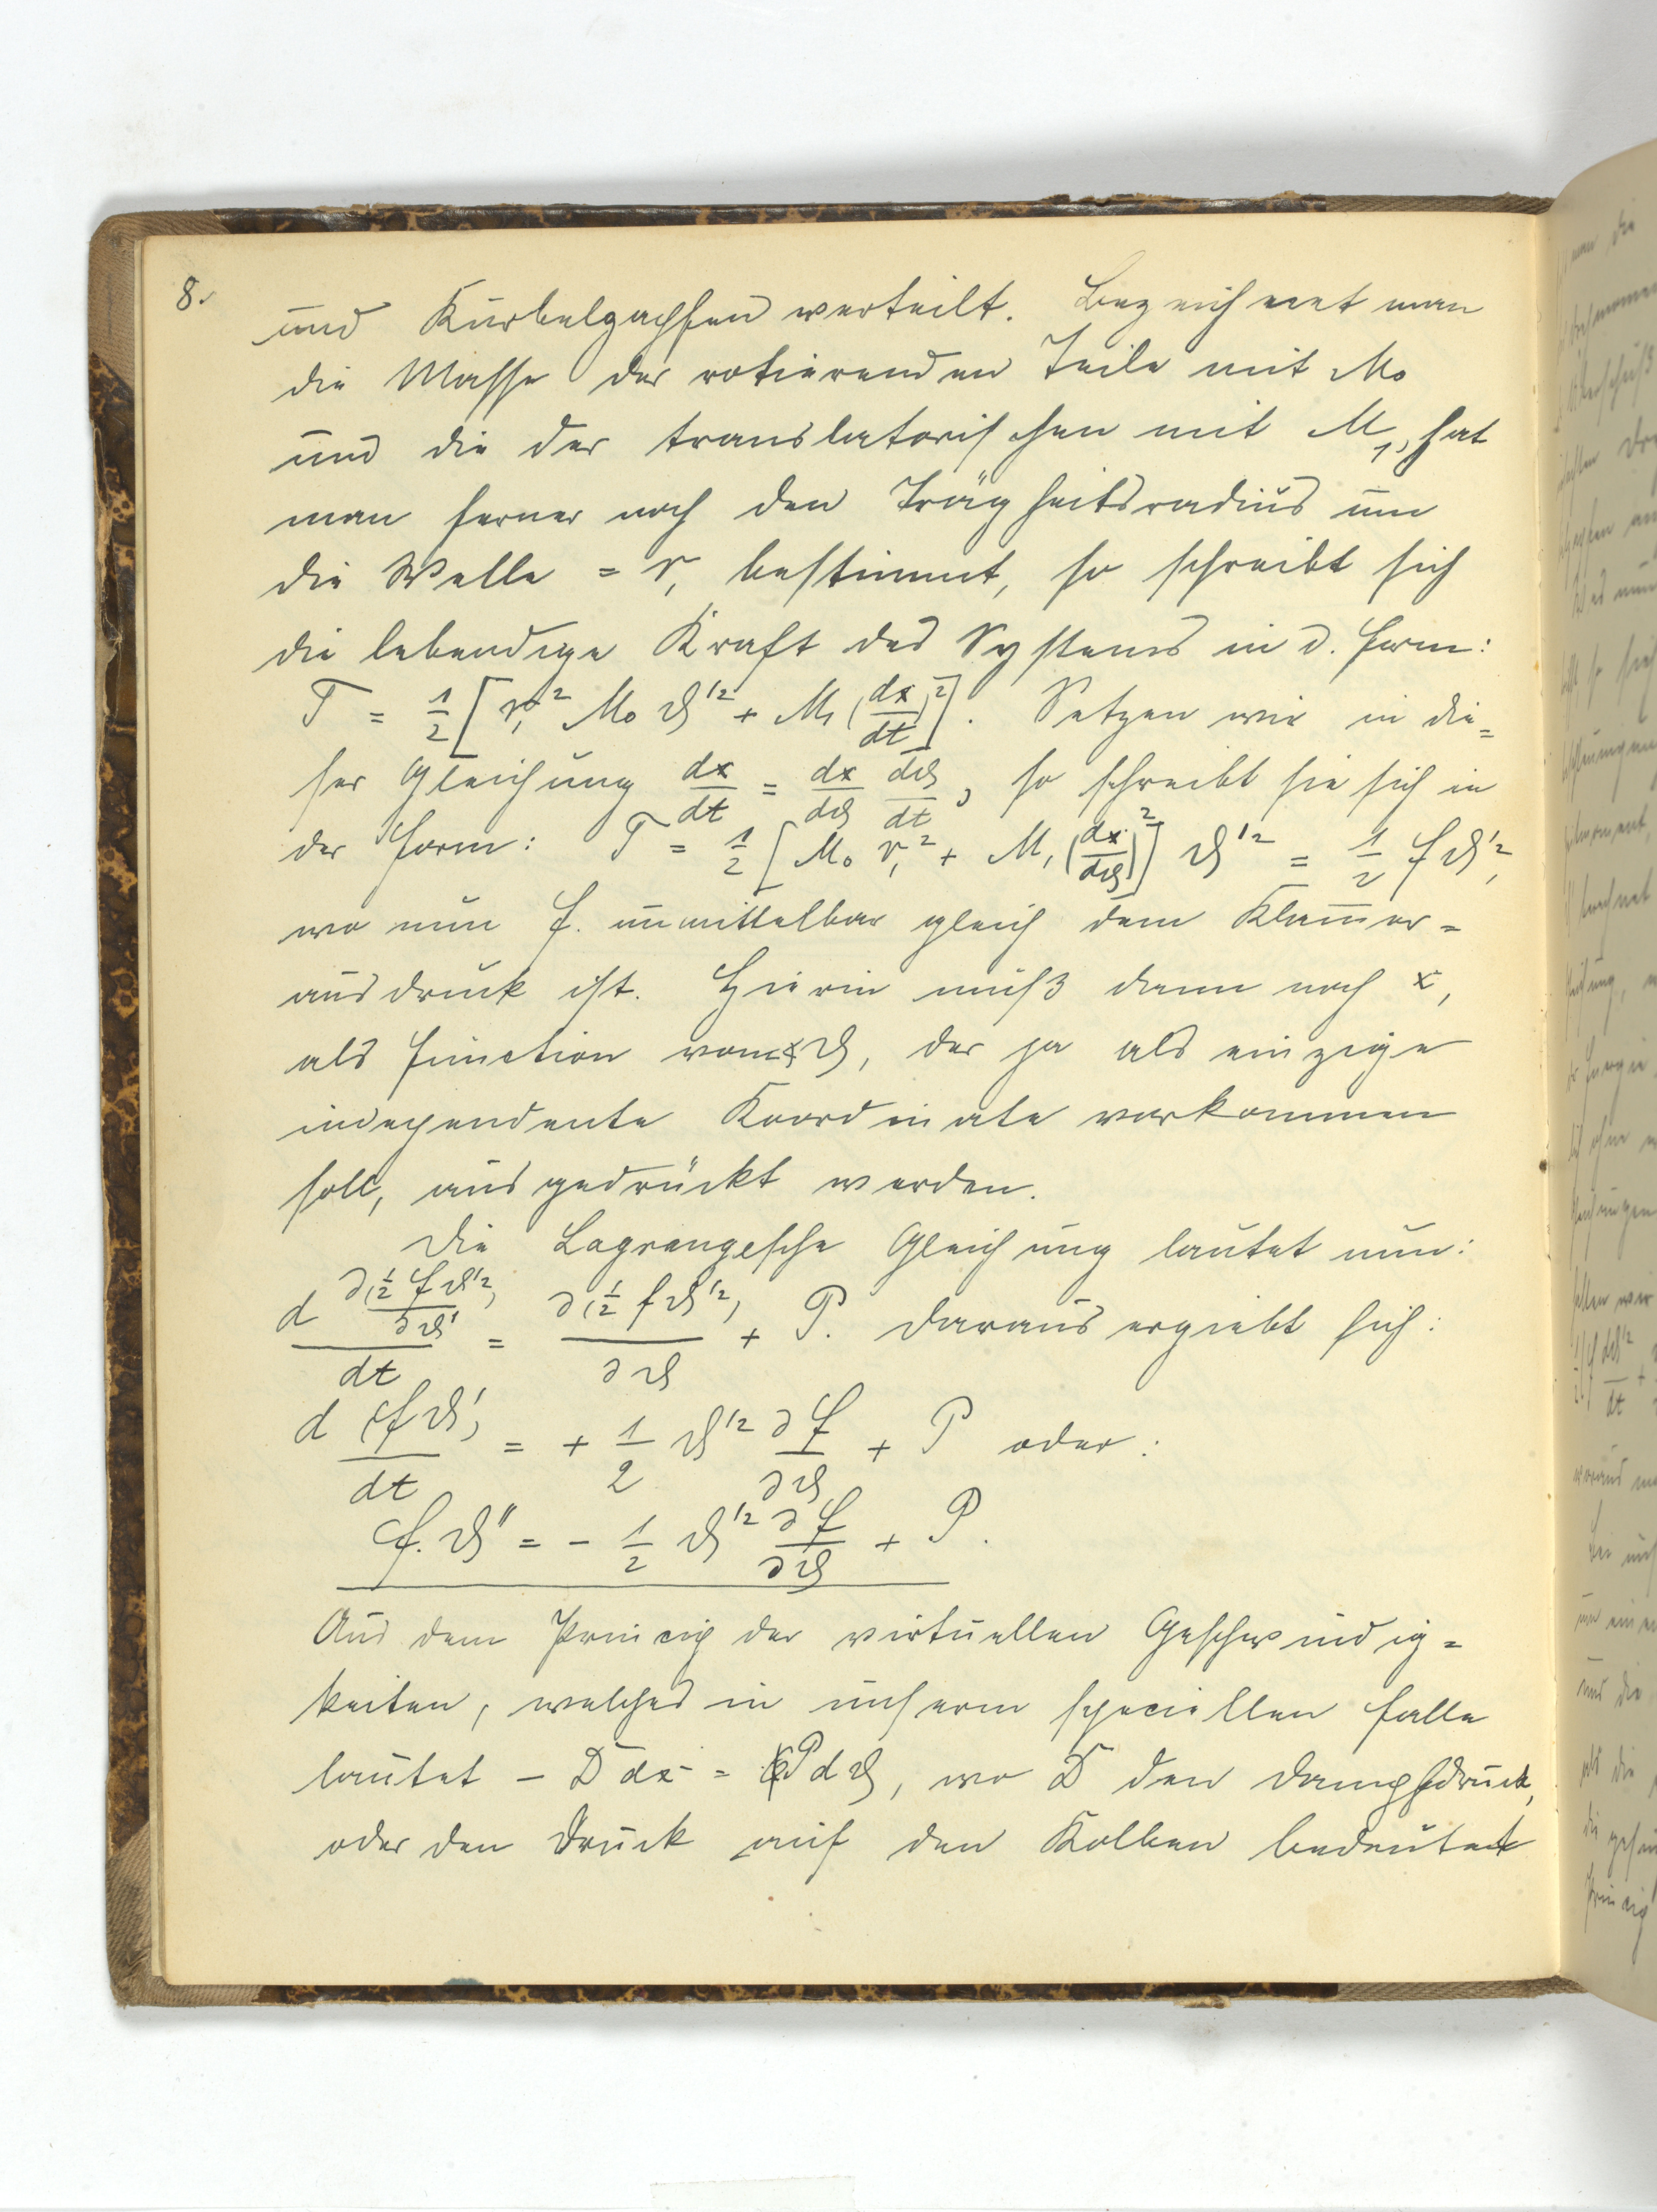 8.
und Kurbelzapfen verteilt. Bezeichnet man
die Masse der rotierenden Teile mit M₀
und die der translatorischen mit M₁, hat
man ferner noch den Trägheitsradius um
die Welle = r, bestimmt, so schreibt sich
die lebendige Kraft des Systems in d. Form:
T = 1/2 [r₁² M₀ ϑ'² + M₁ (dx/dt)²]. Setzen wir in die=
ser Gleichung dx/dt = dx/dϑ dϑ/dt, so schreibt sie sich in
der Form: T = 1/2 [M₀ r₁² + M₁ (dx/dϑ)²] ϑ'² = 1/2 f ϑ'²,
wo nun f. unmittelbar gleich dem Klam̅er=
ausdruck ist. Hierin muß dann noch x,
als Function von ϑ, der ja als einzige
independente Koordinate vorkommen
soll, ausgedrückt werden.
Die Lagrangesche Gleichung lautet nun:
d ∂(1/2 f ϑ'²)/∂ϑ' / dt = ∂(1/2 f ϑ'²)/∂ϑ + P. Daraus ergiebt sich:
d (f ϑ')/dt = + 1/2 ϑ'² ∂f/∂ϑ + P oder:
f. ϑ'' = - 1/2 ϑ'² ∂f/∂ϑ + P.
Aus dem Princip der virtuellen Geschwindig=
keiten, welches in unserm speciellen Falle
lautet - D dx = P dϑ, wo D den Dampfdruck,
oder den Druck auf den Kolben bedeutet